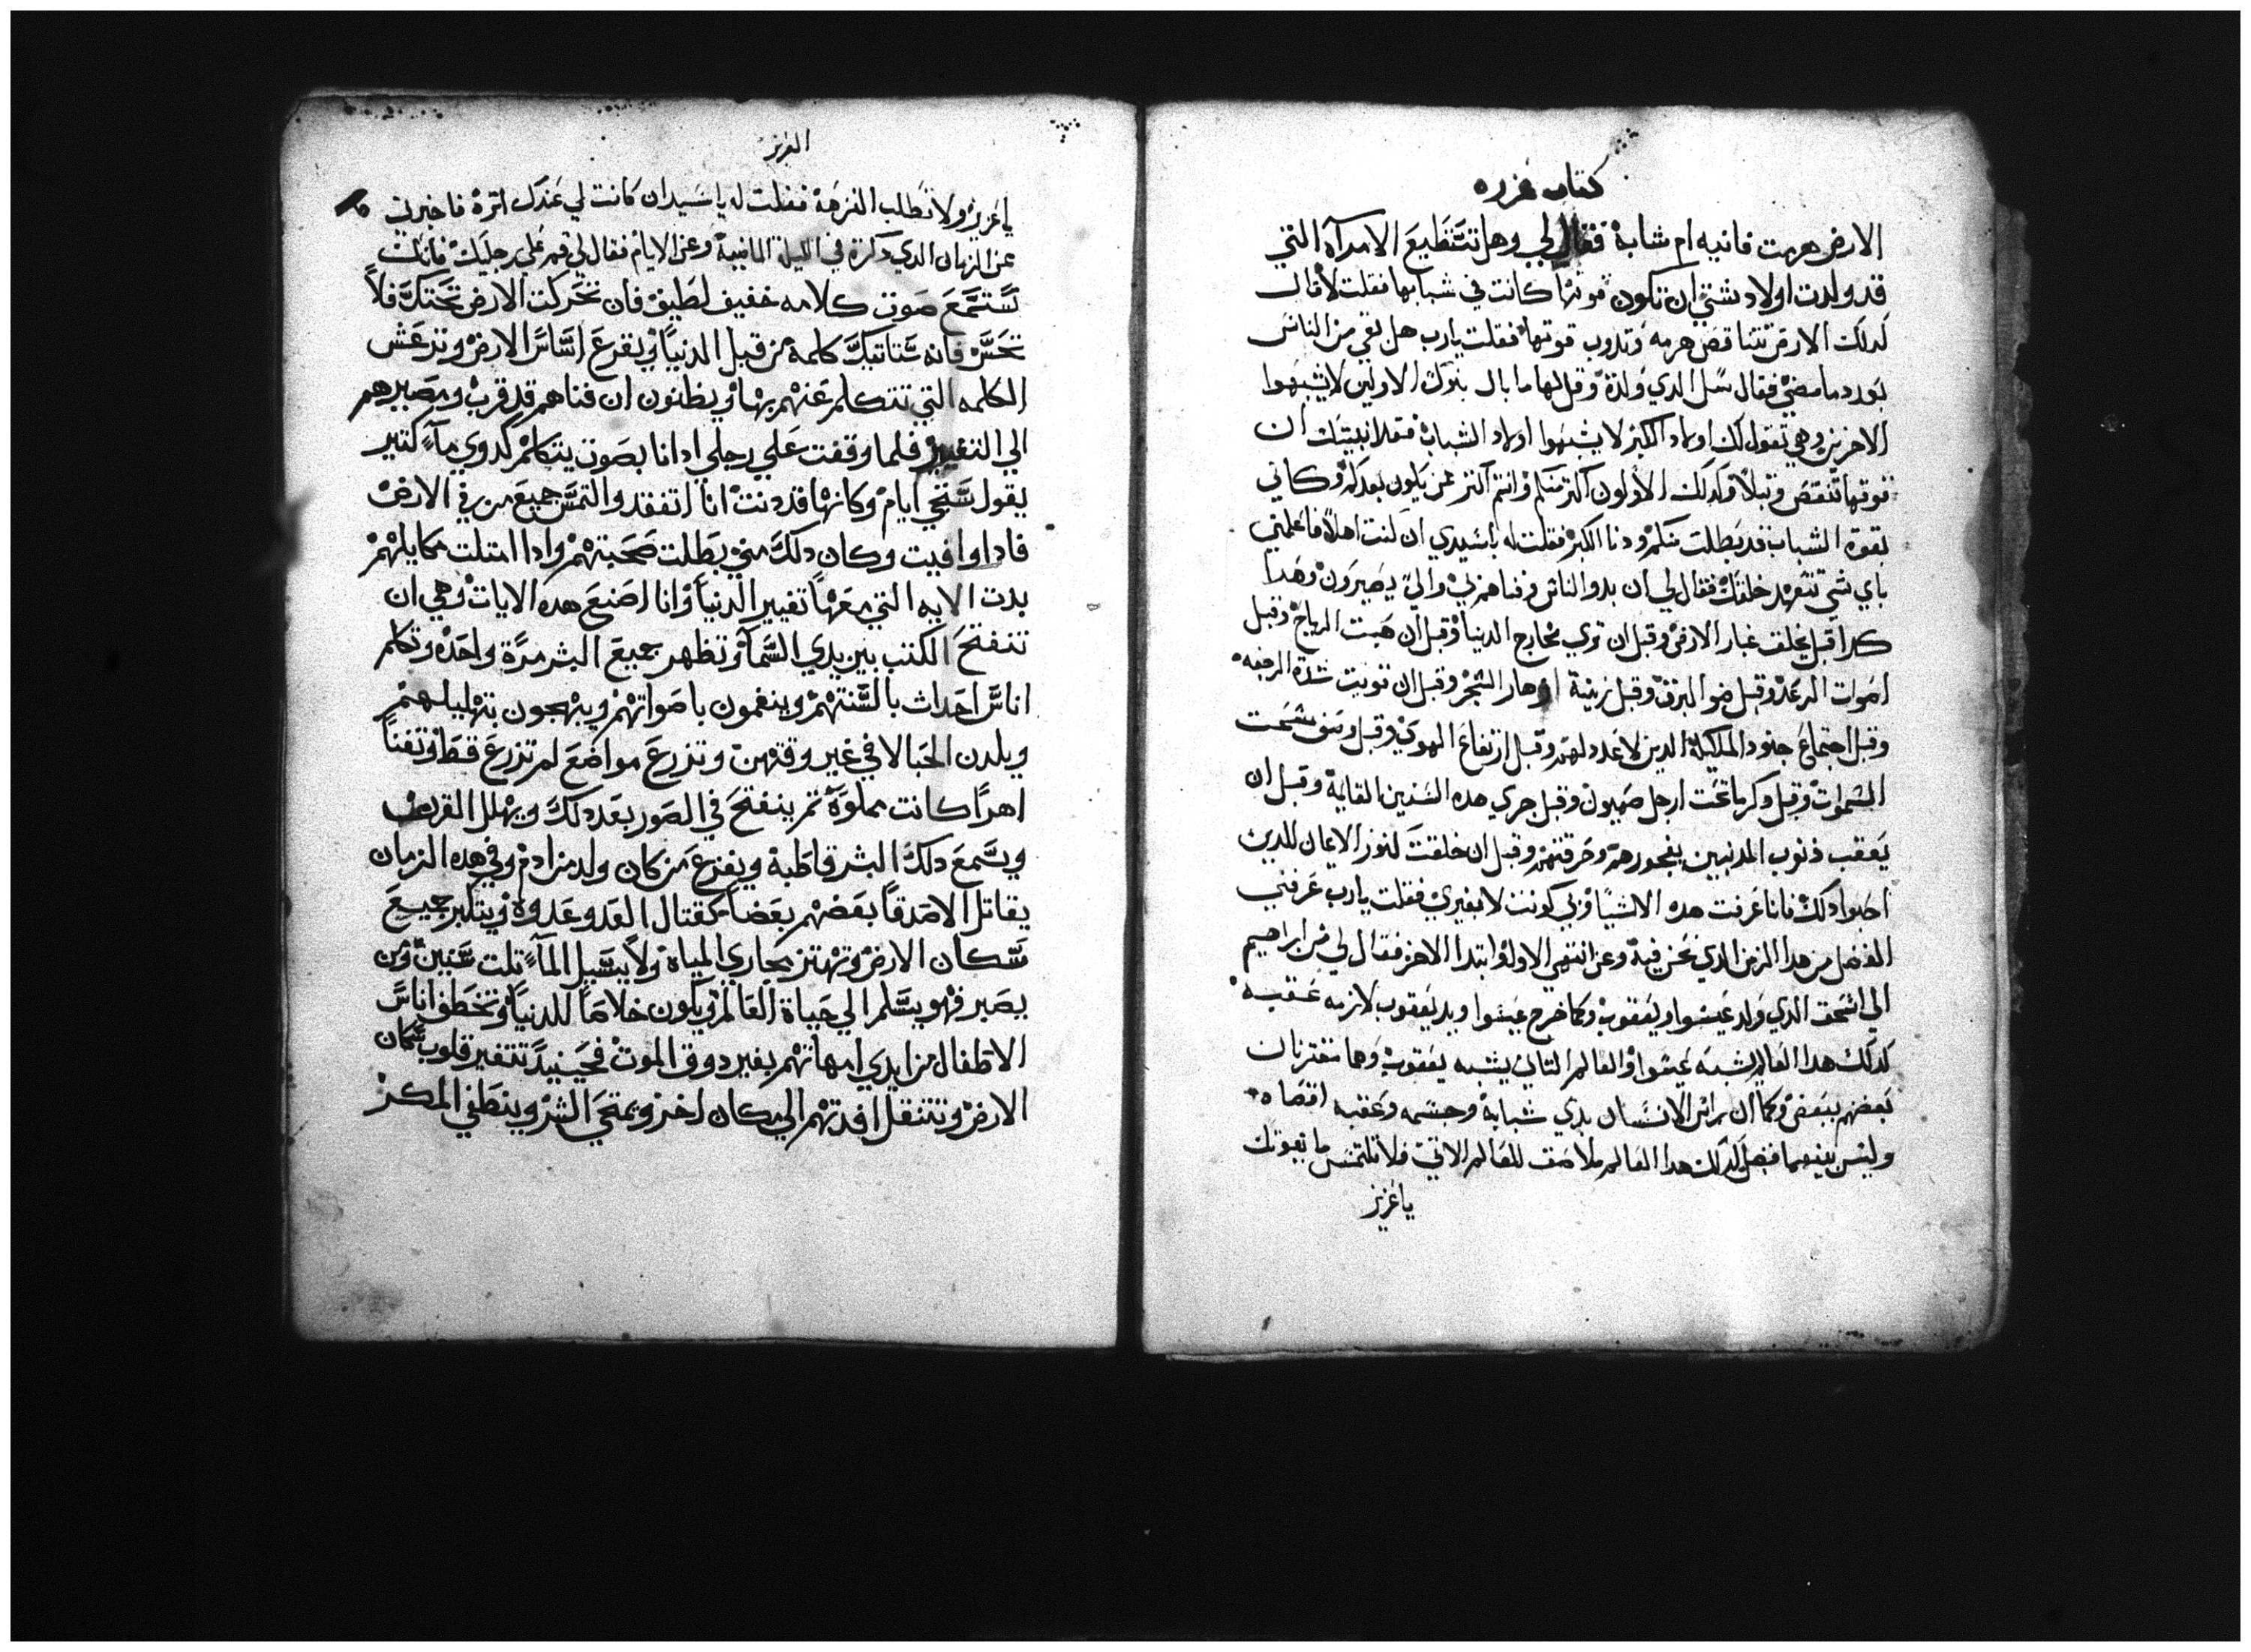 كتاب عزره
الارض هرمت فانيه ام شابة فقال لي وهل تستطيع الامرآه التي
قد ولدت اولاد شتي ان تكون قوتها كانت في شبابها فقلت لا قال
كدلك الارض تتناقص هرمه وتدوب قوتها فقلت يارب هل بقي من الناس
بورد ما مضي فقال سل الدي ولدة وقل لها ما بال بنوك الاولين لا يشبهوا
الاخرين وهي تقول لك اولاد الكبر لا يشبهوا اولاد الشباب فقد انبيتك ان
قوتها تنقص وتبلا وكدلك الاولون اكتر منكم وانتم اكتر ممن يكون بعدكم وكاني
بقوة الشباب قد بطلت منكم ودنا الكبر فقلت له ياسيدي ان كنت اهلا فاعلمني
باي شي تتعهد خلقك فقال لي ان بدو الناس وفناهم بي والي يصيرون وهدا
كله قبل يخلق غبار الارض وقبل ان تري مخارج الدنيا وقبل ان هبت الرياح وقبل
اصوات الرعد وقبل ضو البرق وقبل زينة ازهار الشجر وقبل ان توبت شدة الرجفه
وقبل اجتماع جنود الملايكة الدين لا عدد لهم وقبل ارتفاع الهوي وقبل وسق شمخت
السموات وقبل دكر ما تحت ارجل صهيون وقبل جري هده السنين الفاية وقبل ان
يعقب ذنوب المدنبين بفجورهم وحرقتهم وقبل ان خلقت كنوز الايمان للدين
احبوا دلك فانا عرفت هده الاشيا وبي كونت لا بغيري فقلت يارب عرفني
الفضل من هدا الزمن الدي نحن فيه وعن انتهي الاول وابتدا الاخر فقال لي من ابراهيم
الي اسحق الدي ولد عيسوا ويعقوب وكما خرج عيسوا ويد يعقوب لازمه عقبه
كدلك هدا العالم يشبه عيسوا والعالم التاني يشبه يعقوب وهما مقترنان
بعضهم ببعض وكما ان راس الانسان بدي شبابة وجسمه وعقبه اقصاه
وليس بينهما فصل كدلك هدا العالم ملاصق للعالم الاتي فلا تلتمس ما يفوتك
ياعزيز
العزيز
ياعزيز ولا تطلب النزهة فقلت له ياسيد ان كانت لي عندك اترة فاخبرني
عن الزمان الدي دكرة في الليلة الماضية وعن الايام فقال لي قم علي رجليك فانك
تستمع صوت كلامه خفيف لطيف فان تحركت الارض تحتك فلا
تحس فانه ستاتيك كلمة من قبل الدنيا ويقرع اساس الارض وترعش
الكلمه التي تتكلم عنهم بها ويظنون ان فناهم قد قرب ومصيرهم
الي التغيير فلما وقفت علي رجلي ادا انا بصوت يتكلم كدوي ماء كتير
يقول ستجي ايام وكانها قد دنت انا اتفقد والتمس جميع من في الارض
فادا وافيت وكان دلك مني بطلت صحبتهم وادا امتلت مكايلهم
بدت الايه التي معها تغيير الدنيا وانا اصنع هده الايات وهي ان
تنفتح الكتب بين يدي السما وتظهر جميع البشر مرة واحدة وتكلم
اناس احداث بالسنتهم وينغمون باصواتهم ويبهجون بتهليلهم
ويلدن الحبالا في غير وقتهن وتزرع مواضع لم تزرع قط وتفنا
اهرا كانت مملوة تم ينفتح في الصور بعد دلك ويهلل القرن
ويسمع دلك البشر قاطبة ويفزع من كان ولد من ادم وفي هده الزمان
يقاتل الاصدقا بعضهم بعضا كقتال العدو عدوه ويتكبر جميع
سكان الارض وتهتز مجاري المياة ولا يسيل الماء تلت سنين ومن
يصبر فهو يسلم الي حياة العالم ويكون خلاصا للدنيا وتخطف اناس
الاطفال من ايدي امهاتهم بغير دوق الموت فحينيد تتغير قلوب سكان
الارض وتتنقل افدتهم الي مكان اخر ويمتحي الشر وينطفي المكر